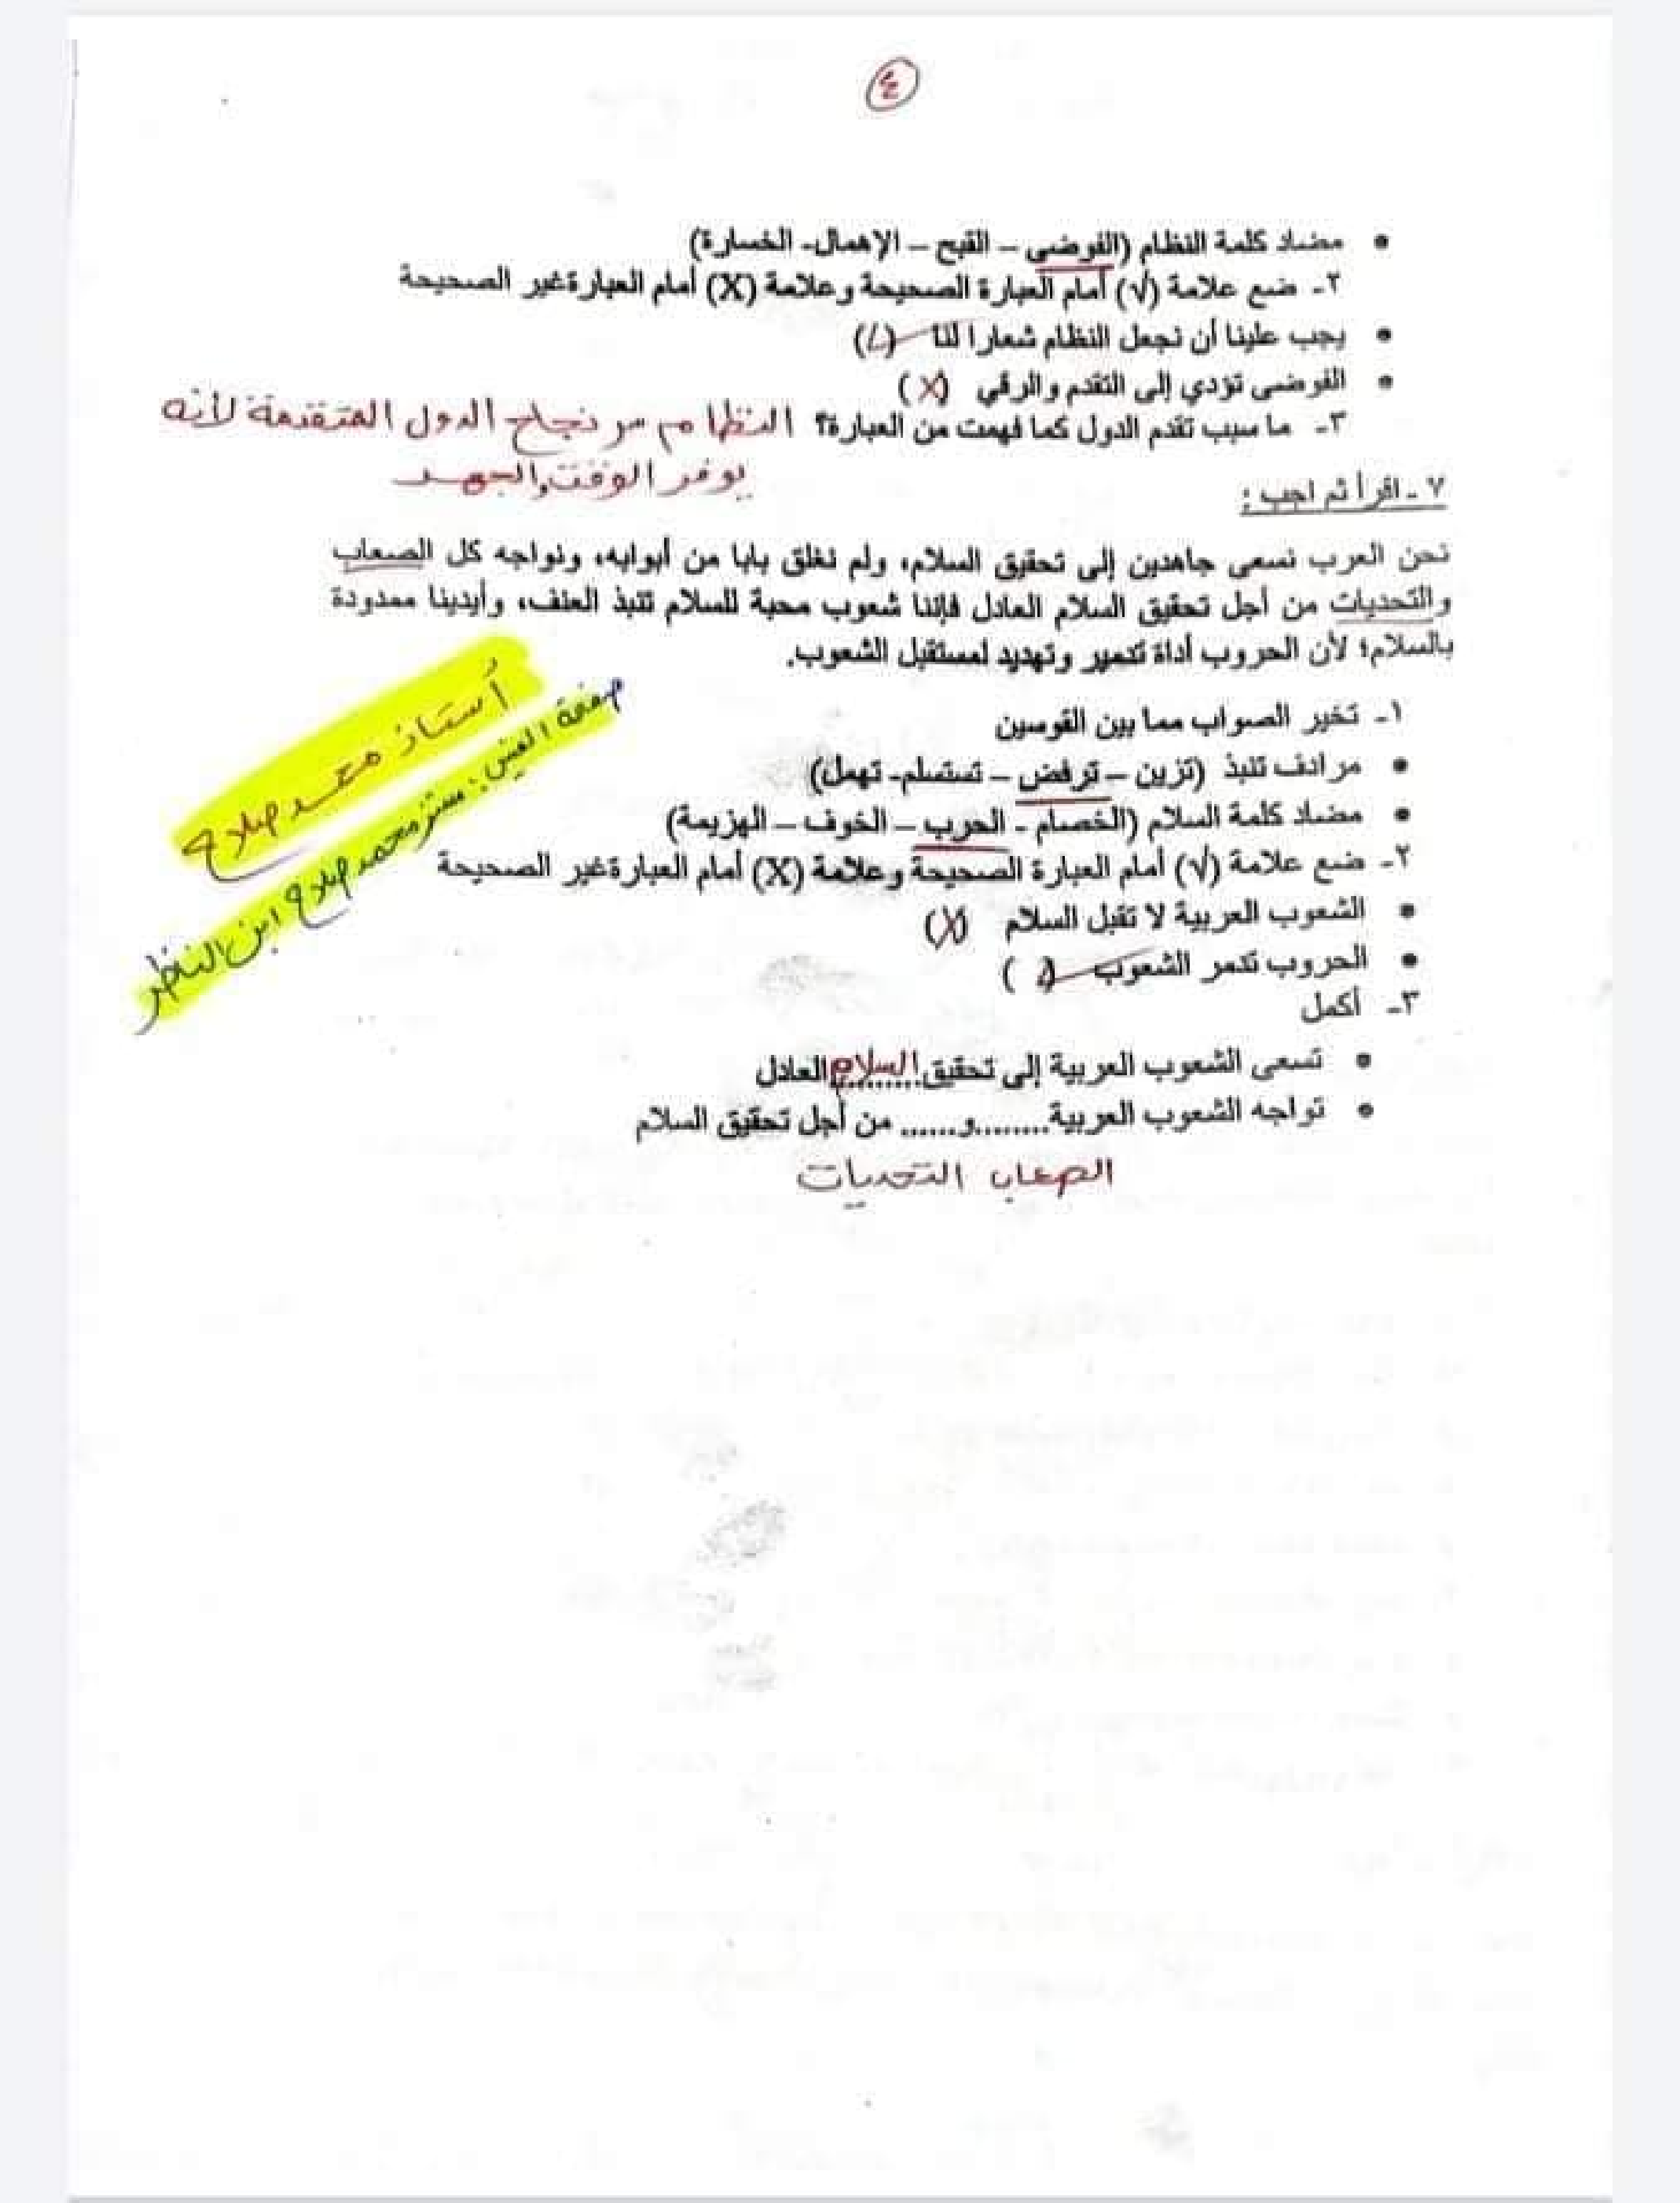 ٤
• مضاد كلمة النظام (الفوضى – القبح – الإهمال- الخسارة)
٢- ضع علامة (√) أمام العبارة الصحيحة وعلامة (X) أمام العبارة غير الصحيحة
• يجب علينا أن نجعل النظام شعارا لنا (√)
• الفوضى تؤدي إلى التقدم والرقي (X)
٣- ما سبب تقدم الدول كما فهمت من العبارة؟ النظام سر نجاح الدول المتقدمة لأنه
يوفر الوقت والجهد
٧ - اقرأ ثم اجب :
نحن العرب نسعى جاهدين إلى تحقيق السلام، ولم نغلق بابا من أبوابه، ونواجه كل الصعاب
والتحديات من أجل تحقيق السلام العادل فإننا شعوب محبة للسلام تنبذ العنف، وأيدينا ممدودة
بالسلام؛ لأن الحروب أداة تدمير وتهديد لمستقبل الشعوب.
أستاذ محمد صلاح
صفحة الفيس : مستر محمد صلاح ابن الناظر
١- تخير الصواب مما بين القوسين
• مرادف تنبذ (تزين – ترفض – تستسلم- تهمل)
• مضاد كلمة السلام (الخصام - الحرب – الخوف – الهزيمة)
٢- ضع علامة (√) أمام العبارة الصحيحة وعلامة (X) أمام العبارة غير الصحيحة
• الشعوب العربية لا تقبل السلام (X)
• الحروب تدمر الشعوب (√)
٣- أكمل
• تسعى الشعوب العربية إلى تحقيق.السلام.العادل
• تواجه الشعوب العربية.........و...... من أجل تحقيق السلام
الصعاب التحديات